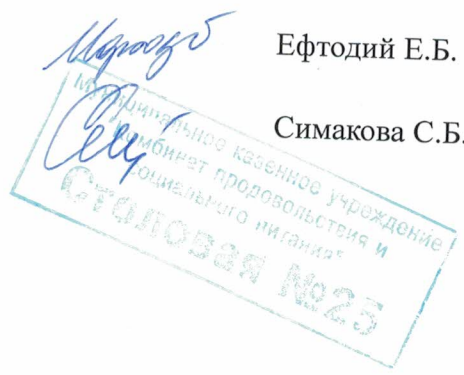 Ефтодий Е.Б.
Симакова С.Б.
Муниципальное казенное учреждение
"Комбинат продовольствия и
социального питания"
Столовая №25